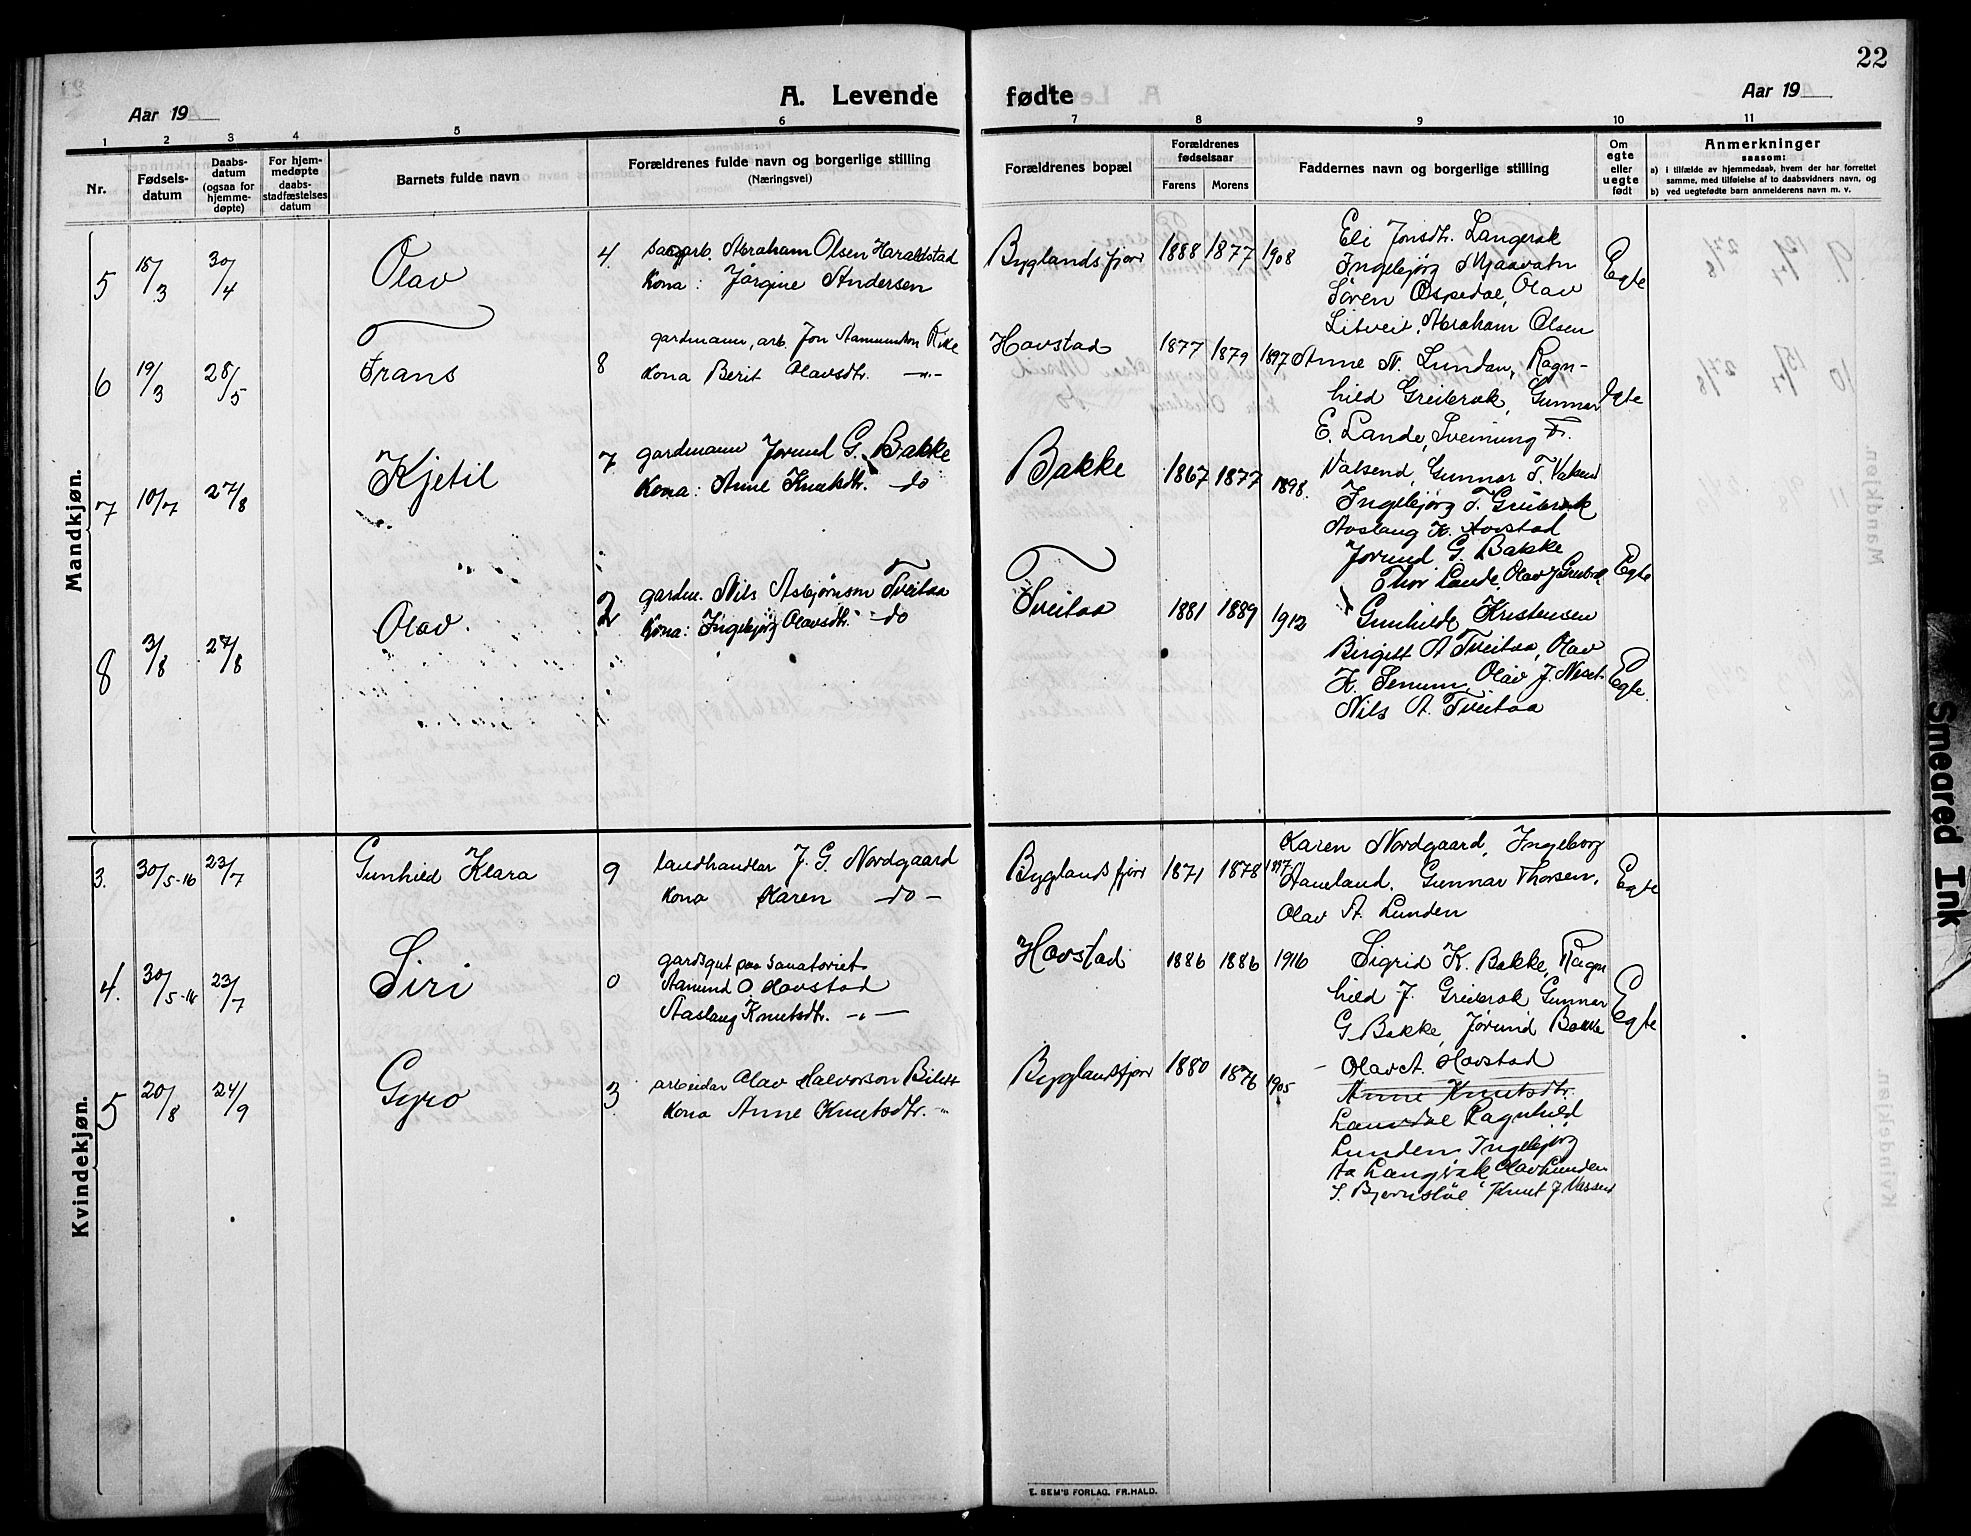 22
Aar 19
A. Levende fødte
Aar 19
1 2 3 4 5 6 7 8 9 10 11
Nr.
Fødsels-
datum
Daabs-
datum
(ogsaa for
hjemme-
døpte)
For hjem-
medøpte
daabs-
stadfæstelses
datum
Barnets fulde navn
Forældrenes fulde navn og borgerlige stilling
(Næringsvei)
Forældrenes bopæl
Forældrenes
fødselsaar
Farens Morens
Faddernes navn og borgerlige stilling
Om
egte
eller
uegte
født
Anmerkninger
saasom:
a) i tilfælde av hjemmedaab, hvem der har forrettet
samme, med tilføielse af to daabsvidners navn, og
b) ved uegtefødte barn anmelderens navn m. v.
Mandkjøn.
5 18/3 30/4 Olav 4.
Abraham Olsen Haraldstad
Kona: Jørgine Andersen
Byglandsfjor 1888 1877 1908
Eli Jonsdtr. Langerak
Ingebjørg Mjaavatn
Søren Ospedal, Olav
Litveit, Abraham Olsen
Egte
6 19/3 28/5 Frans 8
gardmann, arb. Jon Aamundson Rike
Kona Berit Olavsdtr. -"-
Hovstad 1877 1879 1897
Anne N. Lunden, Ragn-
hild Greiberok, Gunnar
E. Lande, Sveinung T.
Valsend, Gunnar T. Valsend
Egte
7 10/7 27/8 Kjetil 7
gardmann Jorund G. Bakke
Kona: Anne Knutsdtr. do
Bakke 1867 1877 1898.
Ingebjørg T. Greiberok
Aaslaug K. Hovstad
Jorund G. Bakke
Thor Lande, Olav J
Egte
8 3/8 27/8 Olav. 2
gardm. Nils Asbjørnson Tveitaa
Kona: Ingebjørg Olavsdtr. do
Tveitaa 1881 1889 1912
Gunhilde Kristensen
Birgitt A Tveitaa, Olav
K. Senum, Olav J. Neset
Nils A. Tveitaa
Egte
Kvindekjøn.
3. 30/5-16 23/7 Gunhild Klara 9
landhandlar J. G. Nordgaard
Kona Karen -do-
Byglandsfjor 1871 1878
Karen Nordgaard, Ingeborg
Haueland, Gunnar Thorsen,
Olav A. Lunden
Egte
4. 30/5-16 23/7 Siri 0
gardsgut paa Sanatoriet
Aamund O. Hovstad
Aaslaug Knutsdtr. -"-
Hovstad 1886 1886 1916
Sigrid K. Bakke, Ragn
hild J. Greiberok Gunnar
G Bakke, Jørund Bakke
- Olav A. Hovstad
Egte
5 20/8 24/9 Gyro 3
arbeidar Olav Halvorson
Kona Anne Knutsdtr. -"-
Byglandsfjor 1880 1876 1905
Anne Knutsdtr.
Ragnhild
Lunden Ingebjørg
Aa Langerak Olav Lunden
Knut J
E. SEM'S FORLAG. FR.HALD.
Smeared Ink